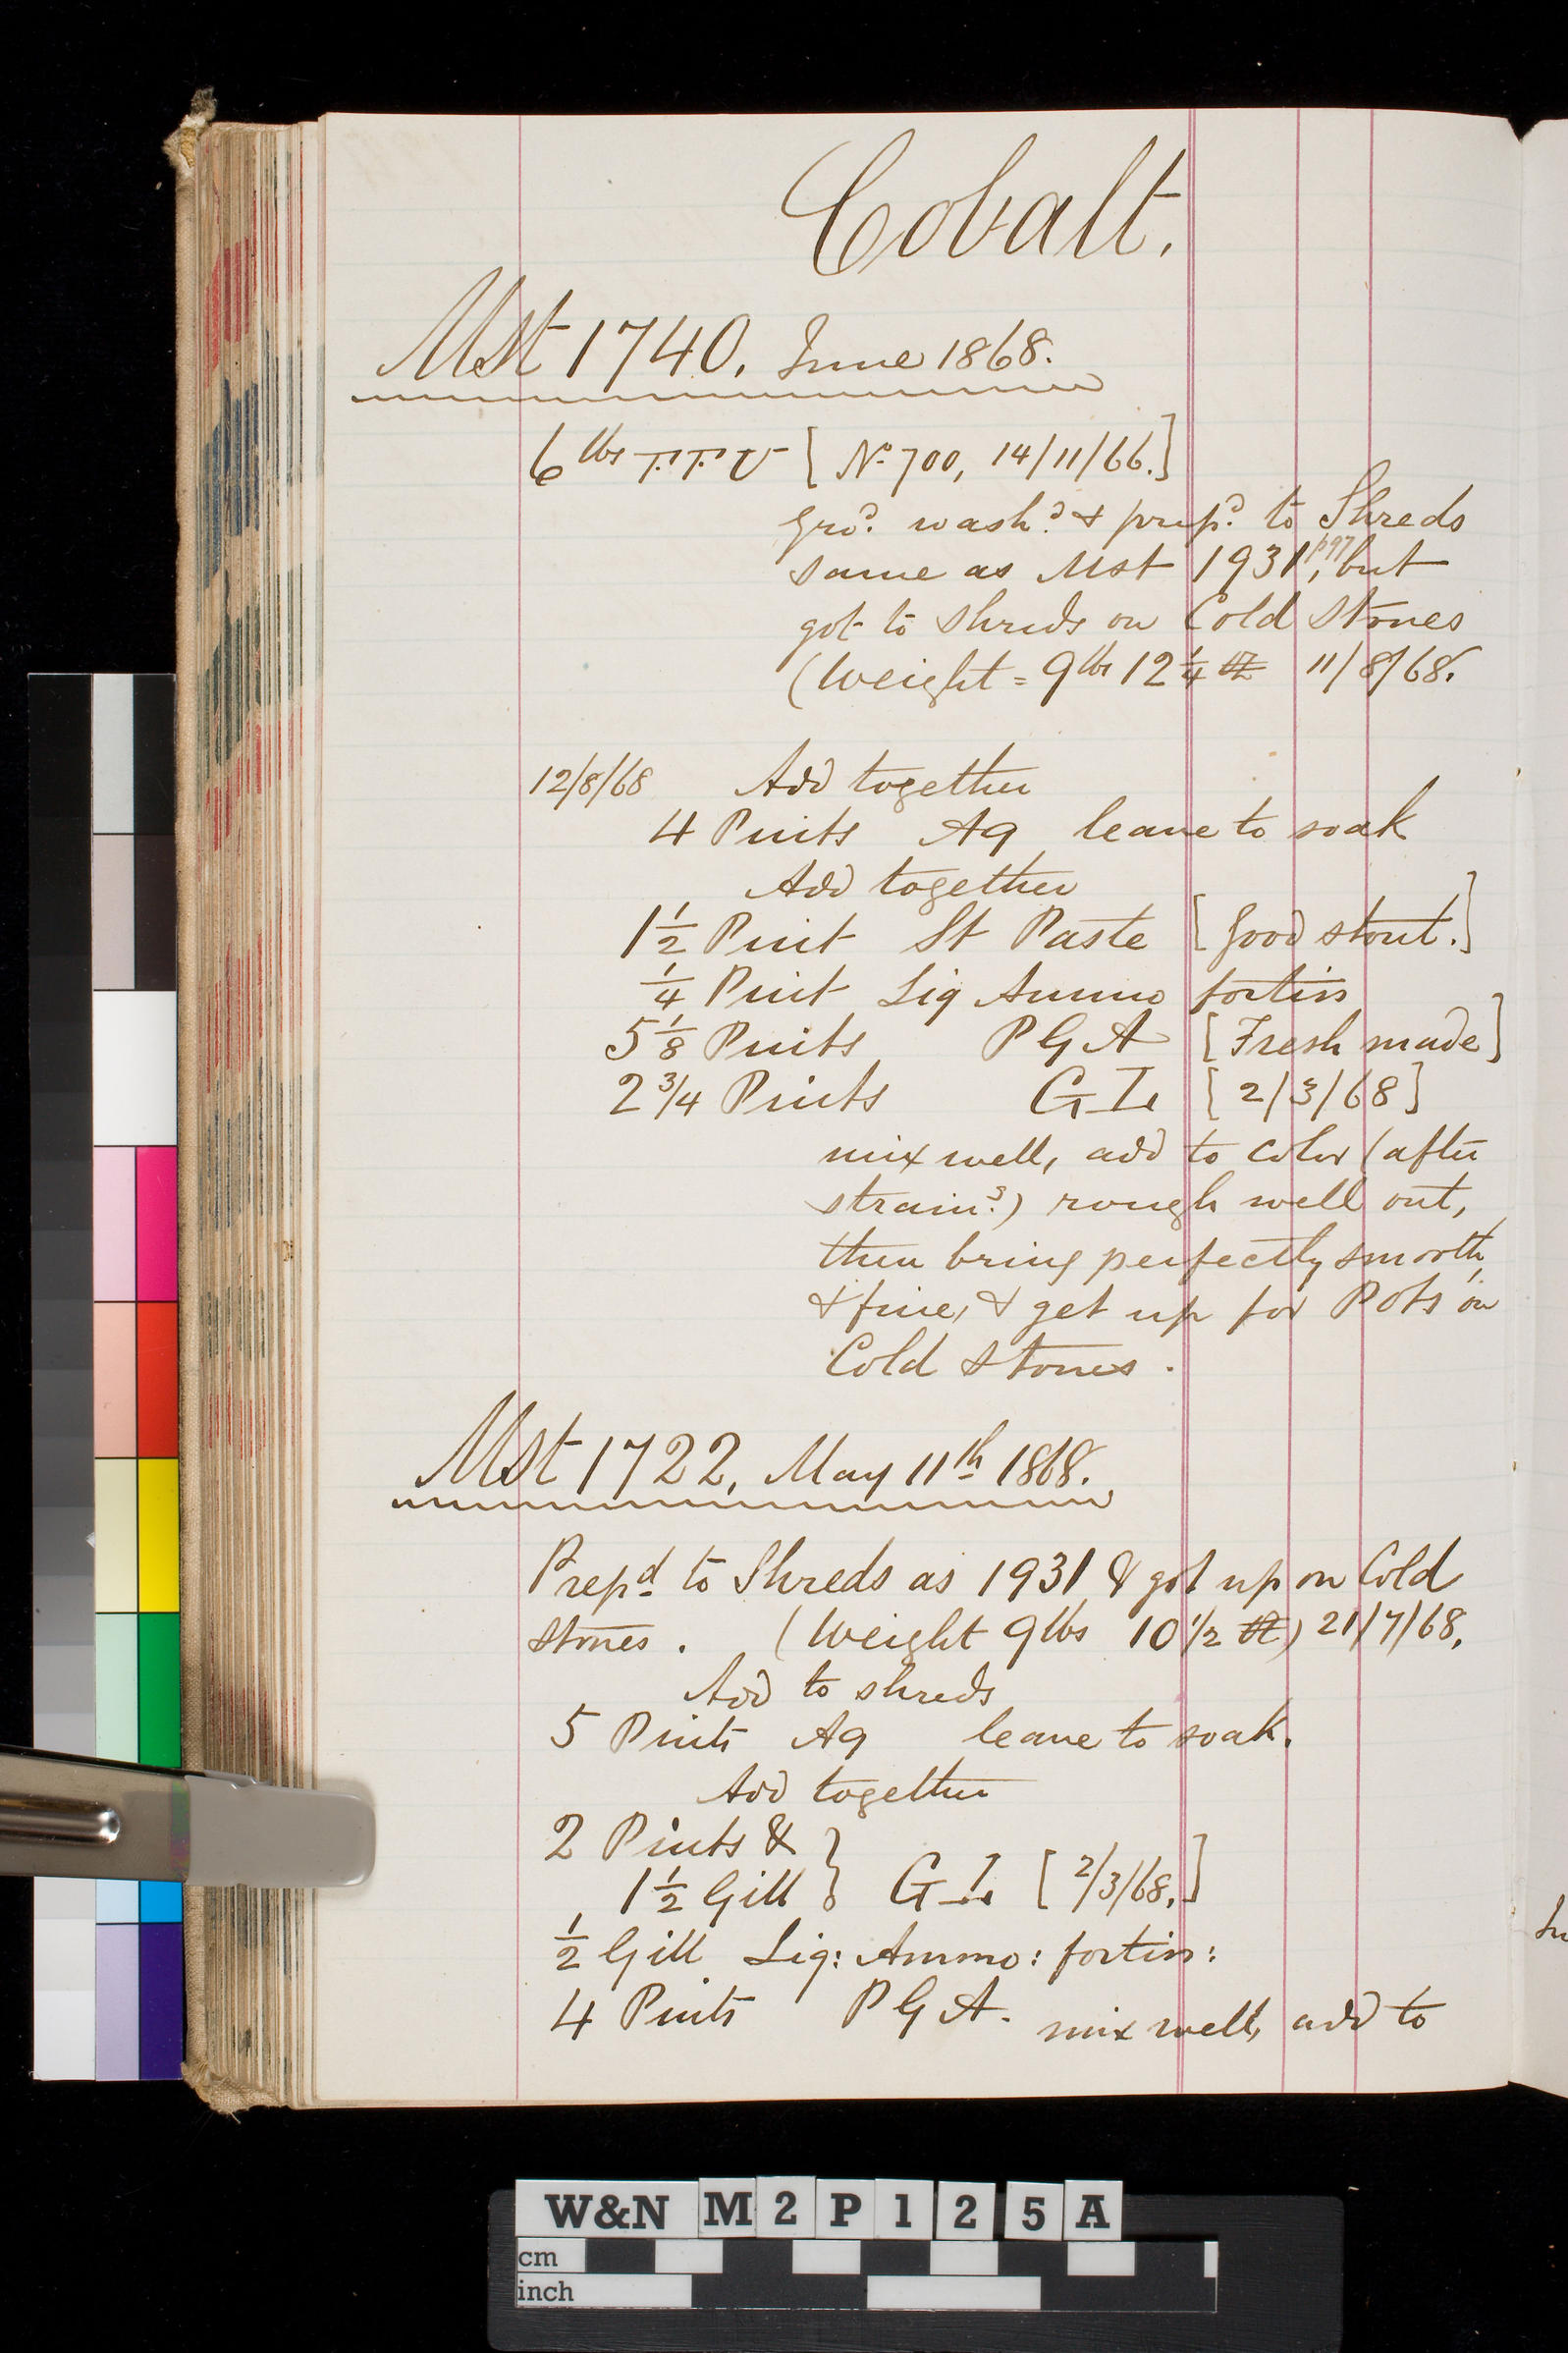 Cobalt.
Mst 1740, June 1868.
6 lbs T.T.U [No 700, 14/11/66.]
grd. washd. & prepd. to Shreds
same as Mst 1931, p97 but
got to shreds on Cold Stones
(Weight = 9 lbs 12 1/4 oz 11/8/68.
12/8/68 Add together
4 Pints Aq leave to soak
Add together
1 1/2 Pint St Paste [good stout.]
1/4 Pint Liq Ammo fortiss
5 1/8 Pints P G A [Fresh made]
2 3/4 Pints G I. [2/3/68]
mix well, add to color (after
straing.) rough well out,
then bring perfectly smooth,
& fine, & get up for Pots on
Cold Stones.
Mst 1722, May 11th 1868.
Prepd to Shreds as 1931 & got up on Cold
stones. (Weight 9 lbs 10 1/2 oz) 21/7/68.
Add to shreds
5 Pints Aq leave to soak.
Add together
2 Pints &
1 1/2 Gill } G I. [2/3/68.]
1/2 Gill Liq: Ammo: fortiss:
4 Pints P G A. mix well, add to
W&N M2P125A
cm
inch